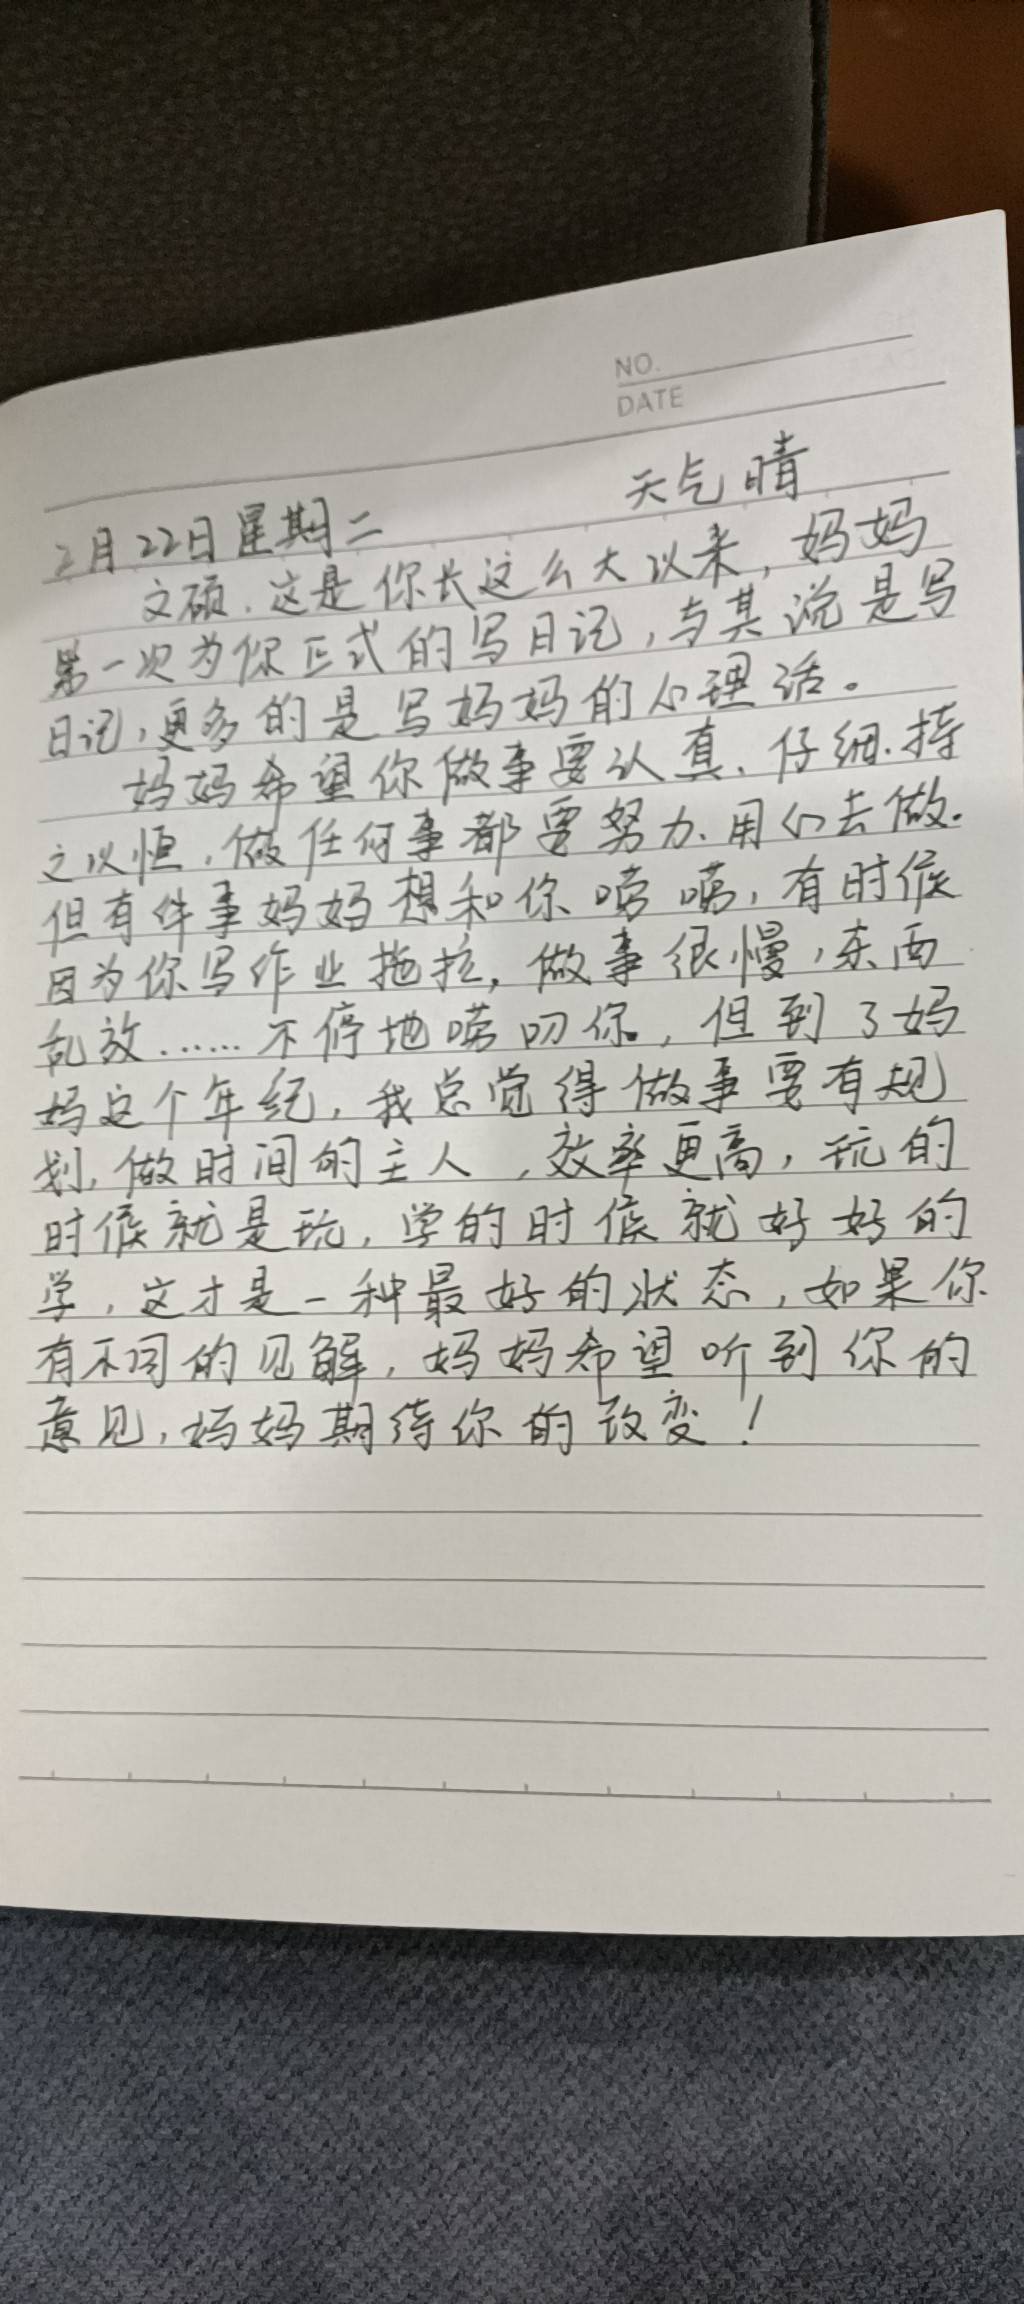 NO.
DATE
2月22日星期二 天气晴
文硕.这是你长这么大以来,妈妈
第一次为你正式的写日记,与其说是写
日记,更多的是写妈妈的心理话。
妈妈希望你做事要认真、仔细.持
之以恒,做任何事都要努力、用心去做.
但有件事妈妈想和你唠唠,有时候
因为你写作业拖拉,做事很慢,东西
乱放……不停地唠叨你,但到了妈
妈这个年纪,我总觉得做事要有规
划,做时间的主人,效率更高,玩的
时候就是玩,学的时候就好好的
学,这才是一种最好的状态,如果你
有不同的见解,妈妈希望听到你的
意见,妈妈期待你的改变!